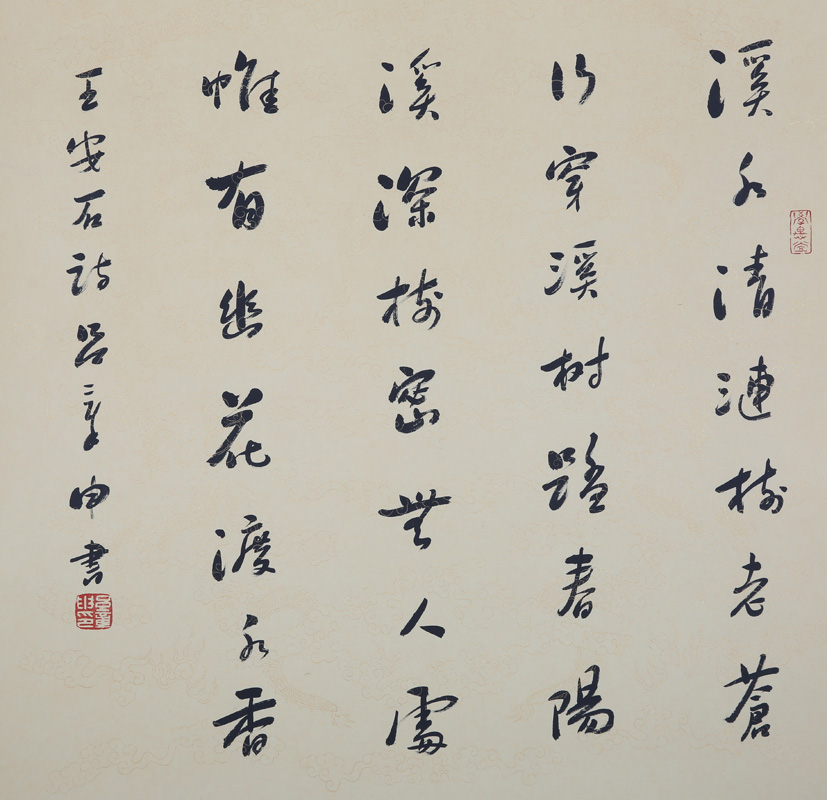 溪水清漣樹老蒼
行穿溪树踏春陽
溪深樹密無人處
惟有幽花渡水香
王安石詩呂章申書
呂章申印